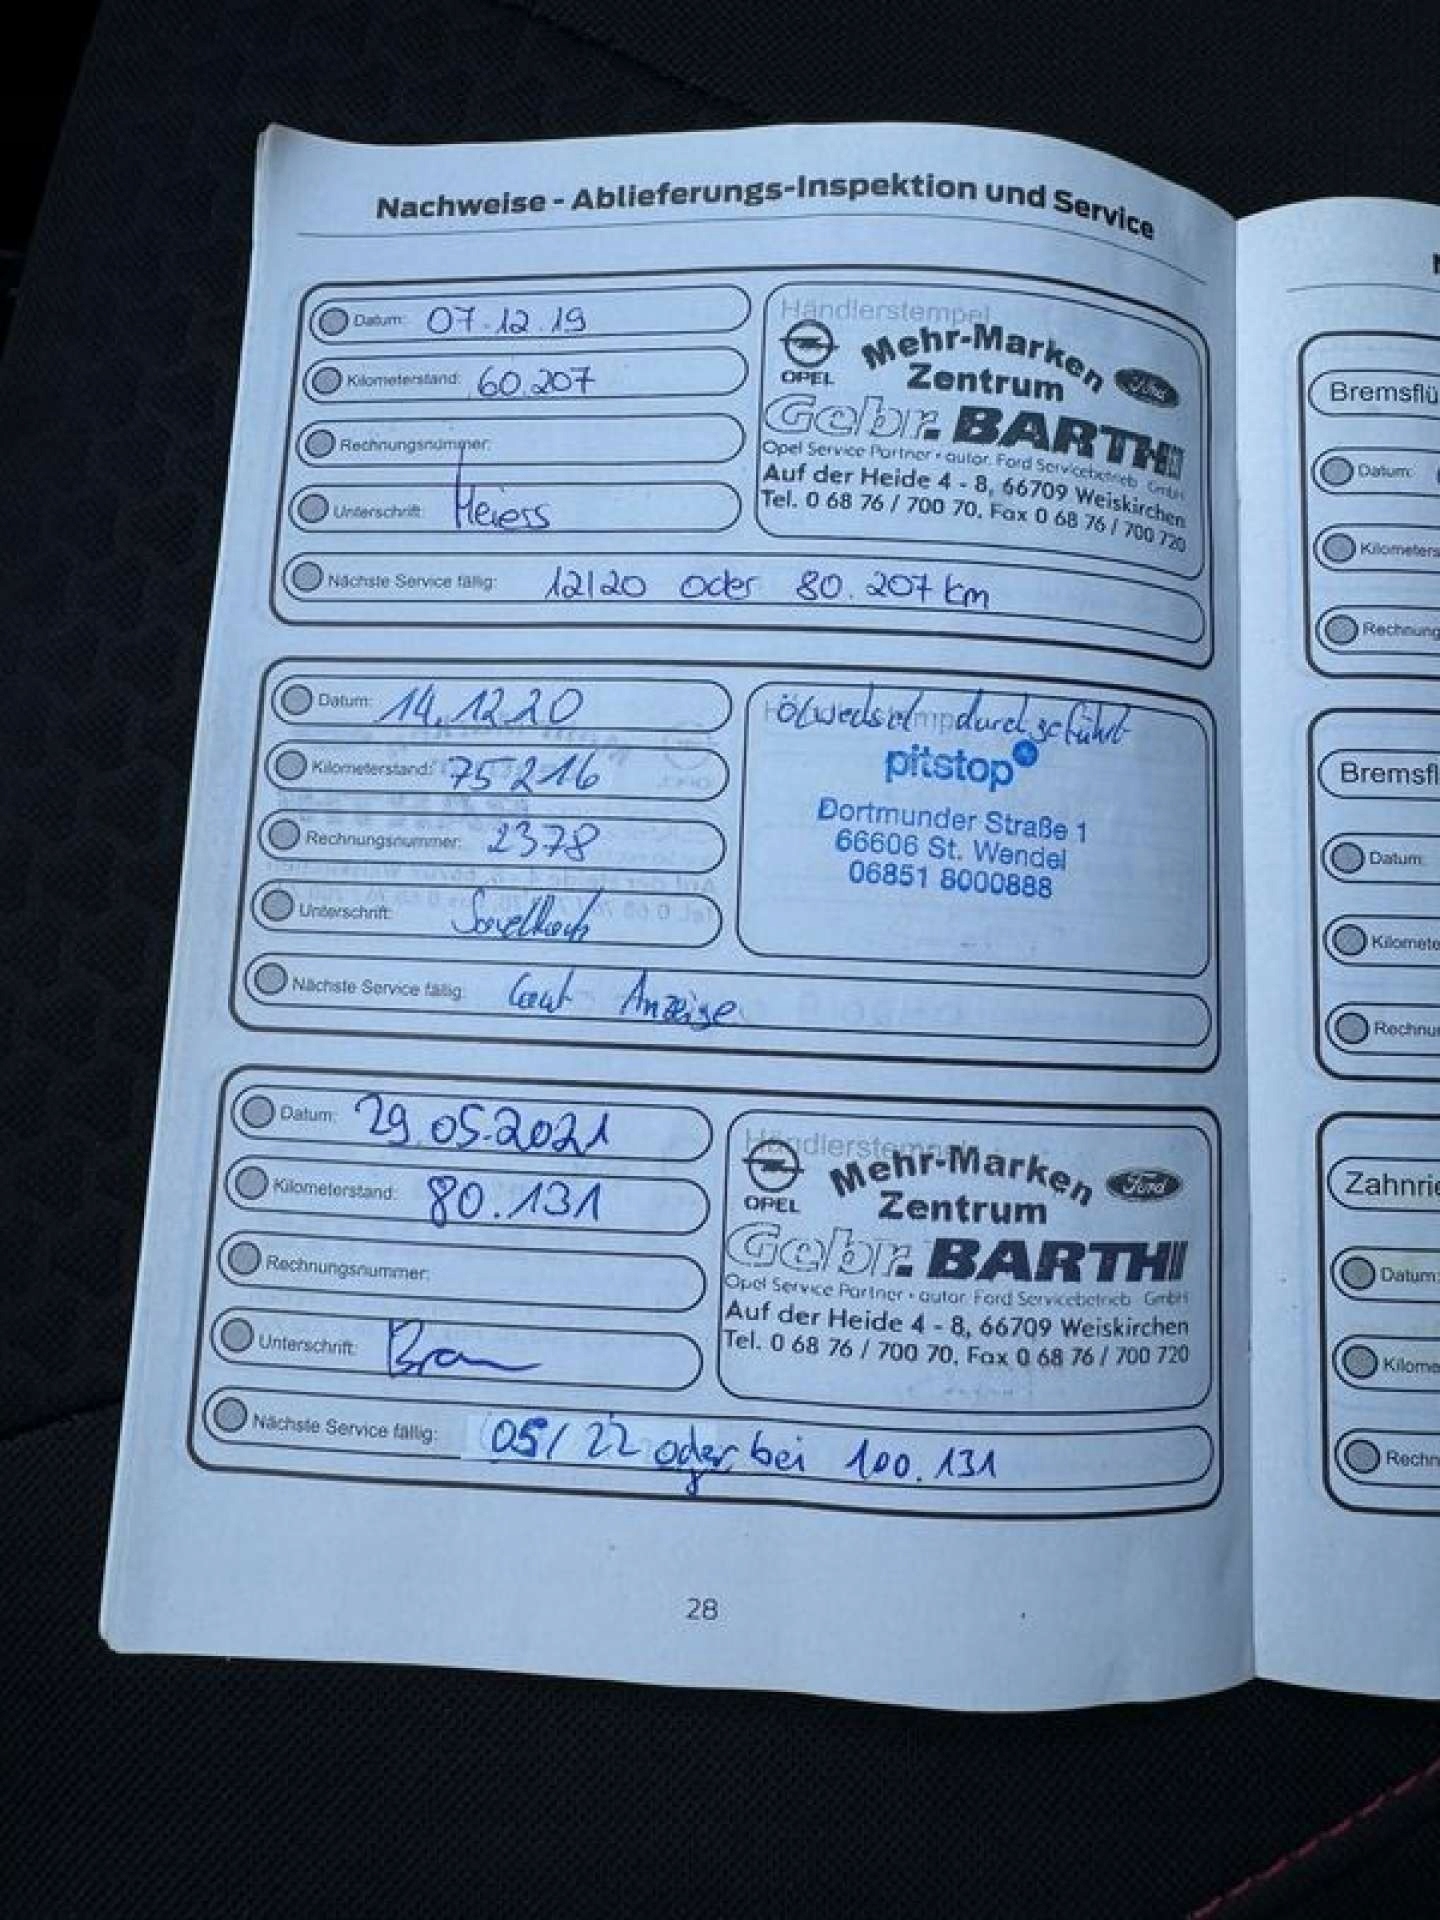 Nachweise - Ablieferungs-Inspektion und Service
Datum: 07.12.19
Kilometerstand: 60.207
Rechnungsnummer:
Unterschrift: Heiess
Nächste Service fällig: 12/20 oder 80.207 km
Händlerstempel
OPEL
Mehr-Marken
Zentrum
Ford
Gebr. BARTH
Opel Service Partner • autor. Ford Servicebetrieb GmbH
Auf der Heide 4 - 8, 66709 Weiskirchen
Tel. 0 68 76 / 700 70, Fax 0 68 76 / 700 720
Datum: 14.12.20
Kilometerstand: 75216
Rechnungsnummer: 2378
Unterschrift:
Nächste Service fällig: Laut Anzeige
Ölwechsel durchgeführt
pitstop
Dortmunder Straße 1
66606 St. Wendel
06851 8000888
Datum: 29.05.2021
Kilometerstand: 80.131
Rechnungsnummer:
Unterschrift:
Nächste Service fällig: 05/22 oder bei 100.131
Händlerstempel
OPEL
Mehr-Marken
Zentrum
Ford
Gebr. BARTH
Opel Service Partner • autor. Ford Servicebetrieb GmbH
Auf der Heide 4 - 8, 66709 Weiskirchen
Tel. 0 68 76 / 700 70, Fax 0 68 76 / 700 720
28
Bremsflü
Datum:
Kilometers
Rechnung
Bremsfl
Datum:
Kilomete
Rechnu
Zahnrie
Datum:
Kilome
Rechn